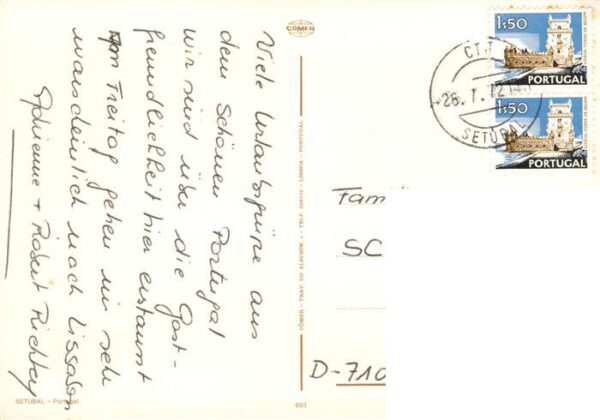 Viele Urlaubsgrüße aus
dem Schönen Portugal
wir sind über die Gast-
freundlichkeit hier erstaunt
Freitag gehen wir sehr
warscheinlich nach Lissabon
+ Robert Richter
COMER
1$50
PORTUGAL
1$50
PORTUGAL
CTT
-28. 7. 72
SETUBAL
Fam
SC
D-710
COMER - TRAV. DO ALECRIM, 1 - TELF. - LISBOA - PORTUGAL
SETUBAL - Portugal
693